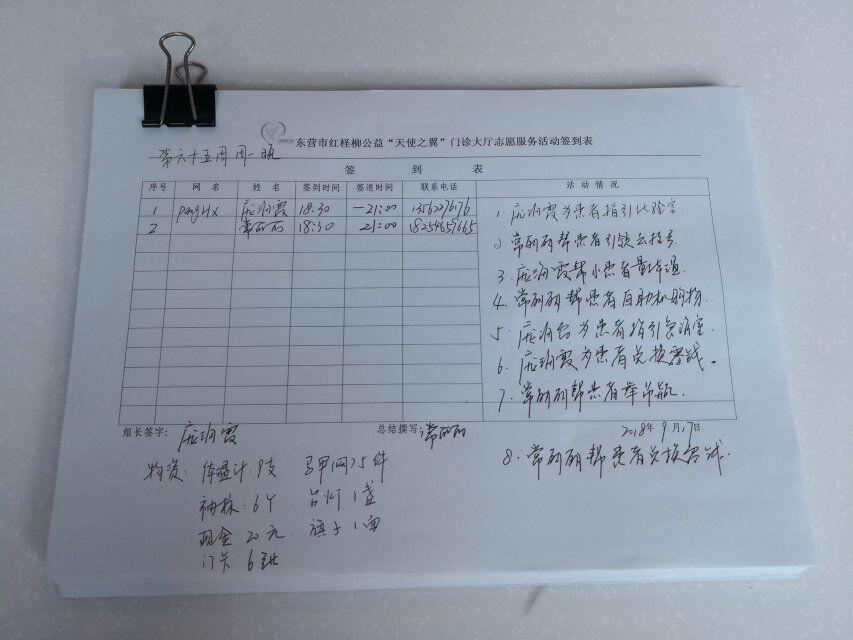 东营市红柽柳公益“天使之翼”门诊大厅志愿服务活动签到表
第六十五周周一晚
签 到 表
序号 网 名 姓 名 签到时间 签退时间 联系电话 活 动 情 况
1 pangHx 庞海霞 18:30 —21:00
2 常丽丽 18:30 21:00 18254659665
1. 庞海霞为患者指引化验室
2. 常丽丽帮患者引领去挂号
3. 庞海霞帮小患者量体温
4. 常丽丽帮患者自助机购物.
5. 庞海霞为患者指引
6. 庞海霞为患者兑换零钱。
7. 常丽丽帮患者举吊瓶
组长签字: 庞海霞 总结撰写: 常丽丽 2018年9月17日
8. 常丽丽帮患者兑换零钱.
物资: 体温计: 9支 马甲网75件.
袖标: 6个 台灯 1盏
现金 20元. 旗子 1面
门卡 6张